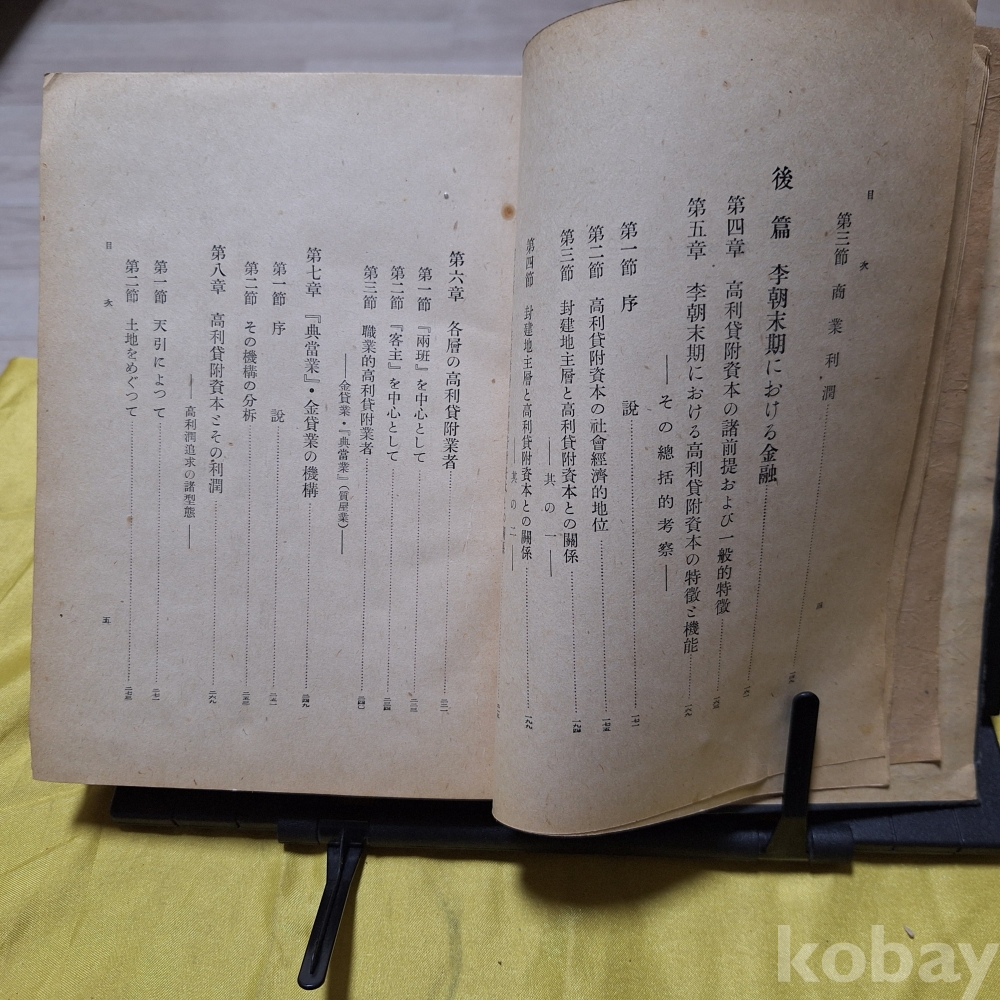 目次
第三節 商業利潤
後篇 李朝末期における金融
第四章 高利貸附資本の諸前提および一般的特徴
第五章 李朝末期における高利貸附資本の特徴と機能
——その總括的考察——
第一節 序說 一七一
第二節 高利貸附資本の社會經濟的地位 一七五
第三節 封建地主層と高利貸附資本との關係 一九四
——其の一——
第四節 封建地主層と高利貸附資本との關係 一九九
——其の二——
第六章 各層の高利貸附業者 二二一
第一節 『兩班』を中心として 二二三
第二節 『客主』を中心として 二三四
第三節 職業的高利貸附業者 二四〇
——金貸業・『典當業』(質屋業)——
第七章 『典當業』・金貸業の機構 二四九
第一節 序說 二五一
第二節 その機構の分析 二五三
第八章 高利貸附資本とその利潤 二六九
——高利潤追求の諸型態——
第一節 天引によつて 二七一
第二節 土地をめぐつて 二七三
目次
五
kobay